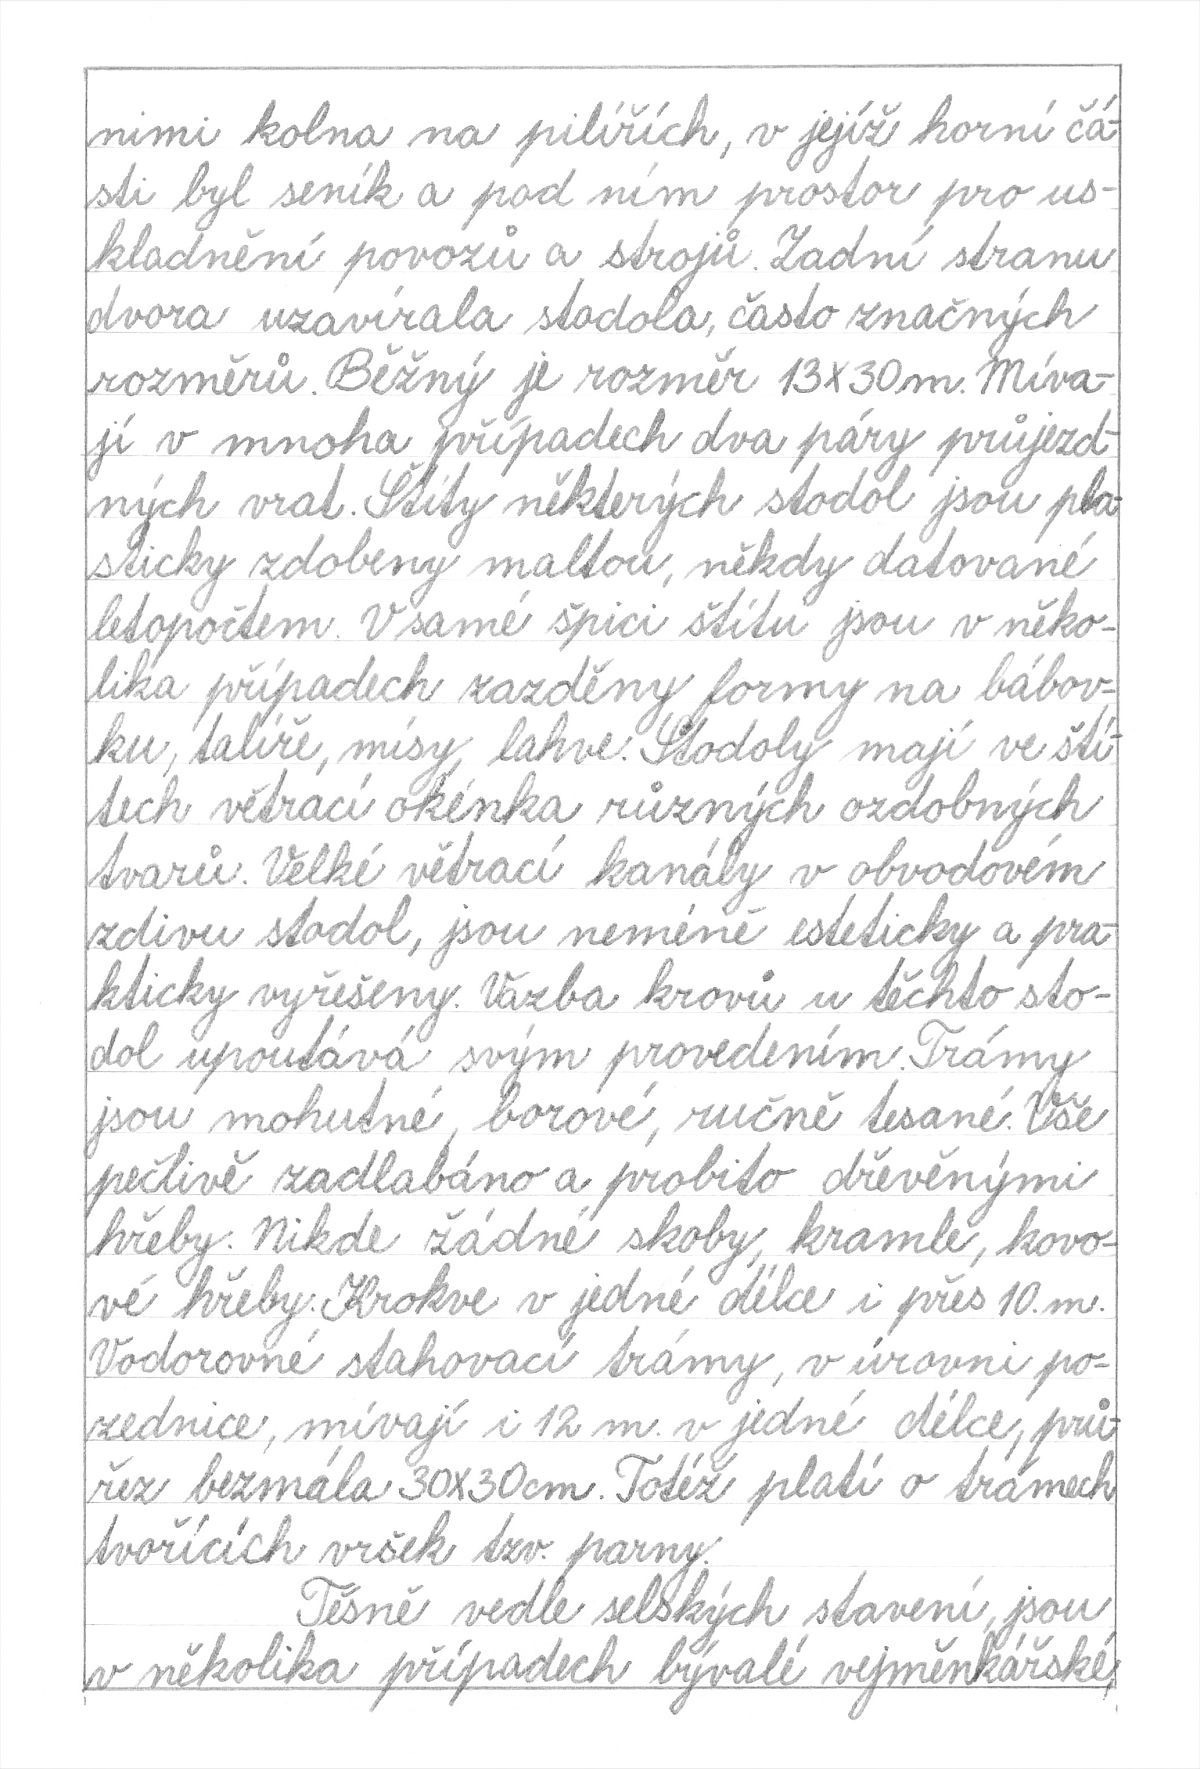 nimi kolna na pilířích, v jejíž horní čá-
sti byl seník a pod ním prostor pro us-
kladnění povozů a strojů. Zadní stranu
dvora uzavírala stodola, často značných
rozměrů. Běžný je rozměr 13x30m. Míva-
jí v mnoha případech dva páry průjezd-
ných vrat. Štíty některých stodol jsou pla-
sticky zdobeny maltou, někdy datované
letopočtem. V samé špici štítu jsou v něko-
lika případech zazděny formy na bábov-
ku, talíře, mísy, lahve. Stodoly mají ve ští-
tech větrací okénka různých ozdobných
tvarů. Velké větrací kanály v obvodovém
zdivu stodol, jsou neméně esteticky a pra-
kticky vyřešeny. Vazba krovů u těchto sto-
dol upoutává svým provedením. Trámy
jsou mohutné, borové, ručně tesané. Vše
pečlivě zadlabáno a probito dřevěnými
hřeby. Nikde žádné skoby, kramle, kovo-
vé hřeby. Krokve v jedné délce i přes 10.m.
Vodorovné stahovací trámy, v úrovni po-
zednice, mívají i 12 m. v jedné délce, prů-
řez bezmála 30x30cm. Totéž platí o trámech
tvořících vršek tzv. parny.
Těsně vedle selských stavení, jsou
v několika případech bývalé vejměnkářské,